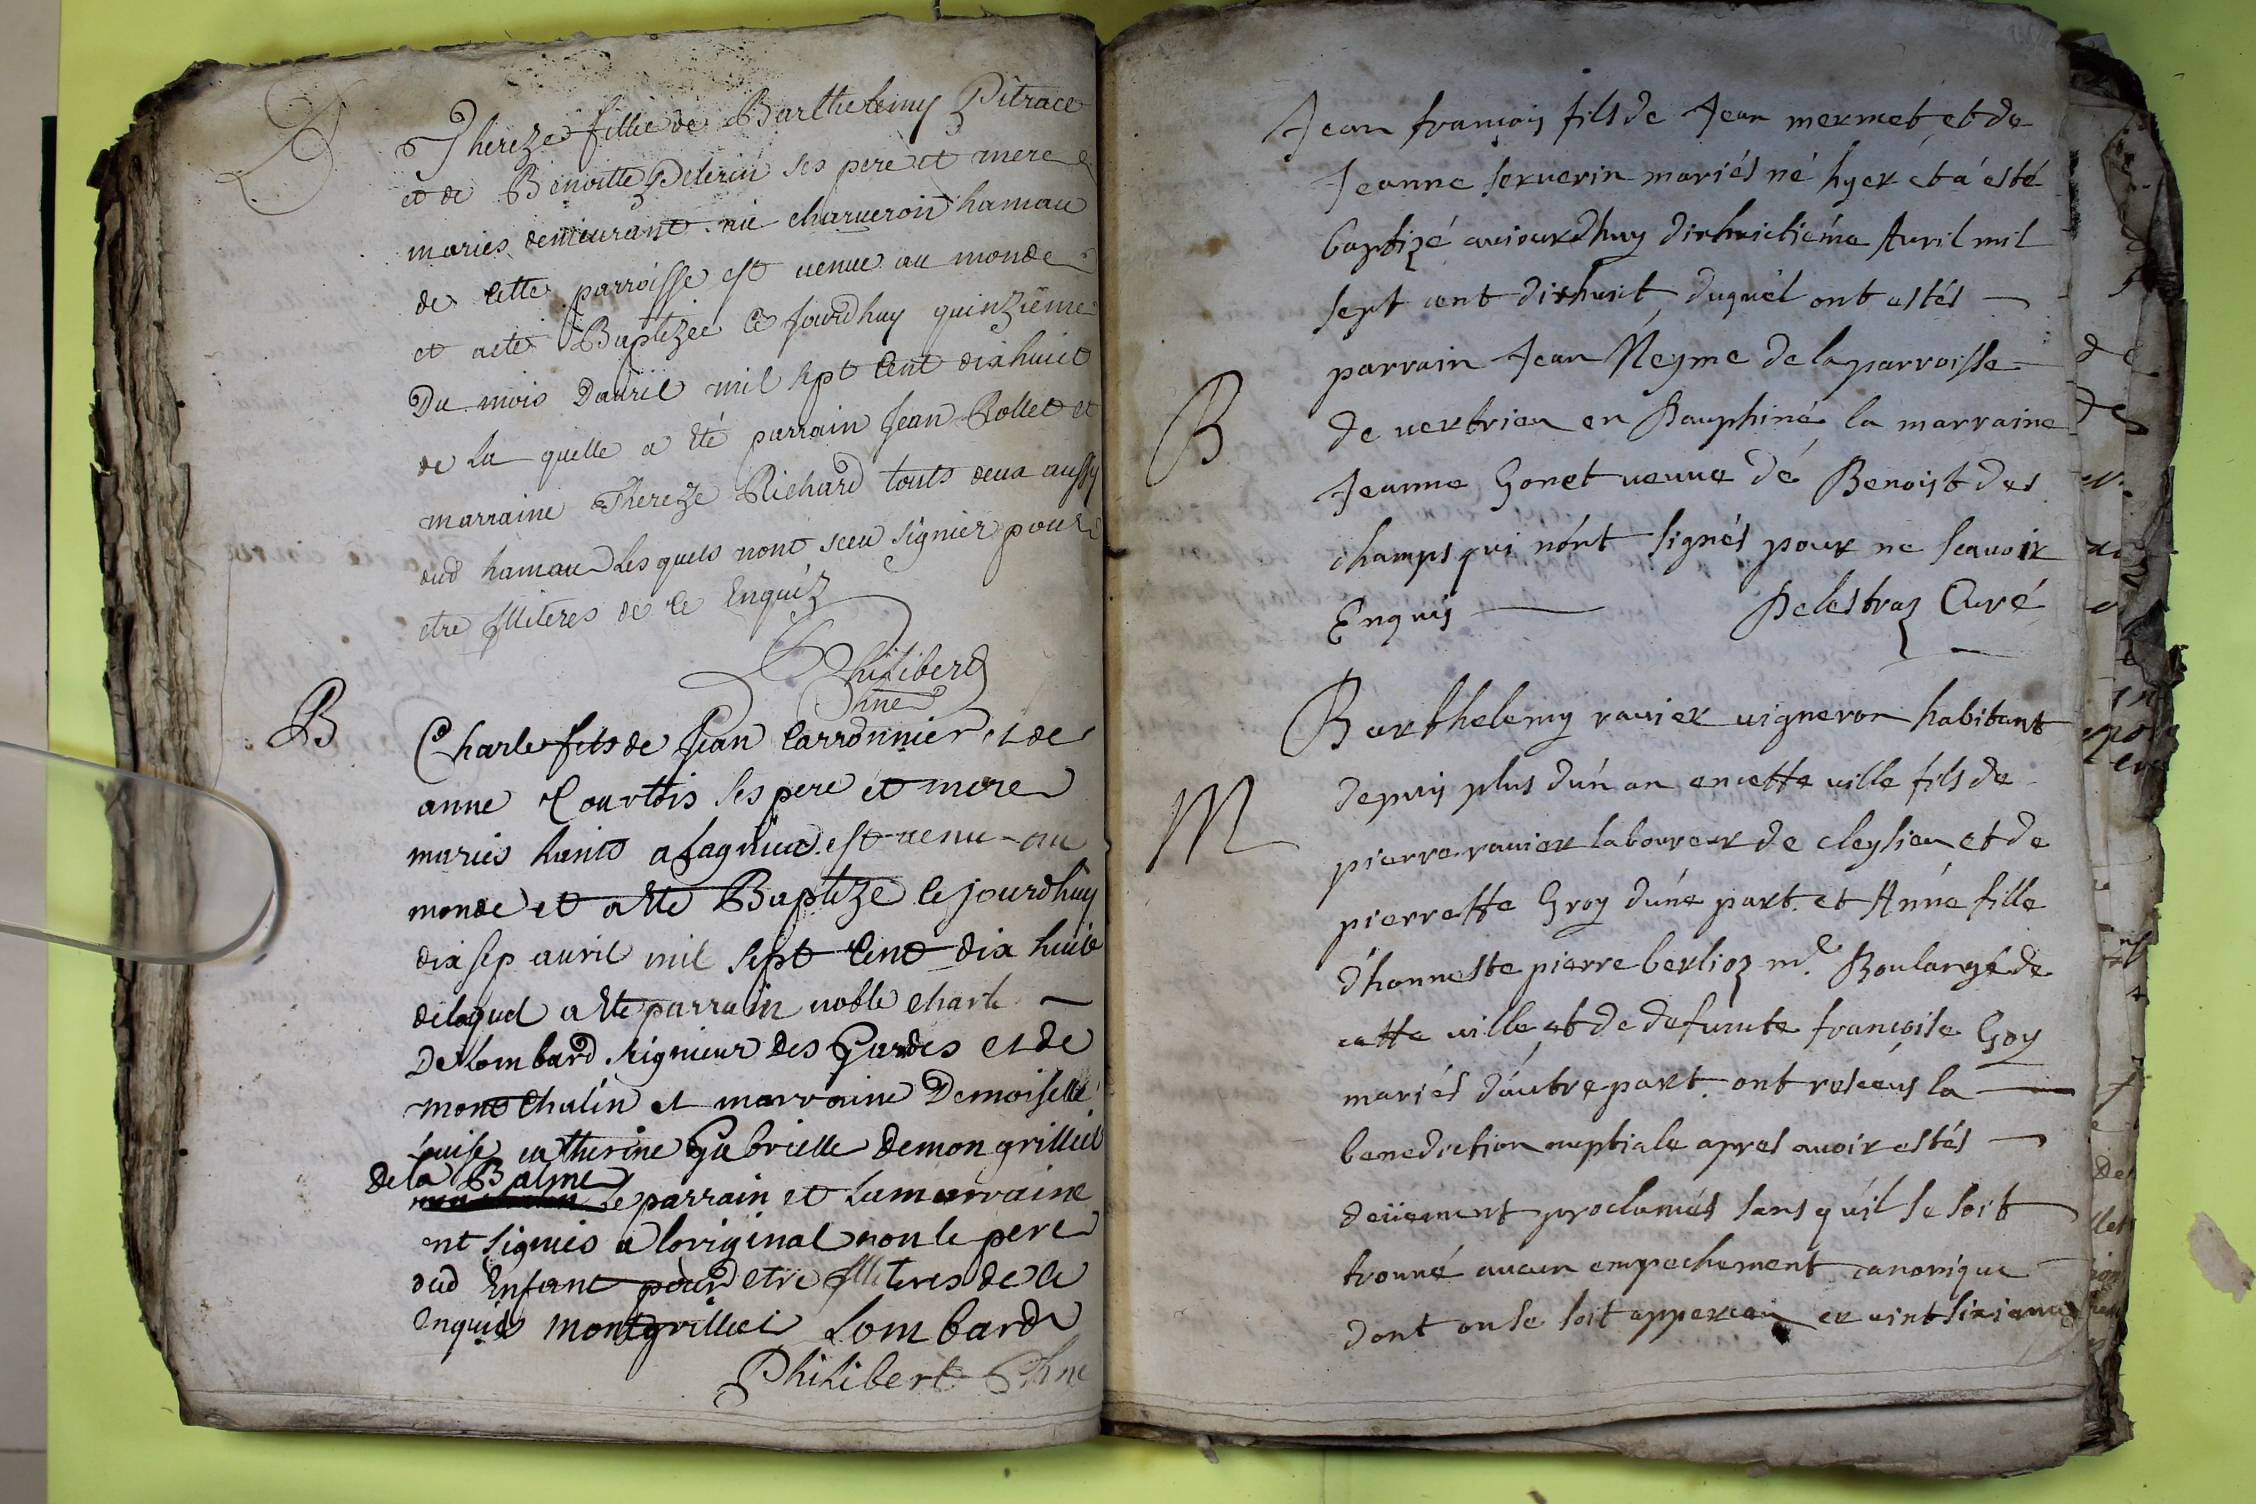 B
Thereze fillie de Barthelemy Pitrace
et de Benoitte Pelerin ses pere et mere
maries demeurant rie charueron hamau
de cette parroisse est venue au monde
et aeté Baptizee ce jourdhuy quinzieme
Du mois Dauril mil sept Cent dix huict
de La quelle a eté parrain Jean Rollet et
marraine Thereze Richard touts deux aussy
dud hamau Les quels nont sceu signier pour
etre Illiteres de ce Enquis
Philibert
B
Charle fils de Jean Carronnier et de
anne Courtois ses pere et mere
mariés hanito a Lagnieu est venu au
monde et a eté Baptize ce jourdhuy
dix sep auril mil sept Cent dix huit
delaquel a eté parrain noble Charle
De Lombard seignieur des Gardes et de
mont Chalin et marraine Demoiselle
Louise catherine Gabrielle demongrilliet
de la Balme
Le parrain et La marraine
ont signiés a loriginal non le pere
dud Enfant pour etre Illiteres de ce
enquis montgrilliet Lombard
Philibert
Jean françois fils de Jean mermet, et de
Jeanne seruerin mariés né hyer et à esté
baptizé auiourdhuy dixhuictiéme Auril mil
sept cent dixhuit, duquel ont estés
parrain Jean Neyme de la parroisse
B
de uertrieu en Dauphiné la marraine
Jeanne Gonet ueuue dé Benoist des
champs qui nónt signés pour ne scauoir
Enquis Delestraz Curé
Barthelemy rauier uigneron habitant
M
depuis plus dún an en cette uille fils de
pierre rauier laboureur de cleysieu et de
pierrette Groy dúne part. et Anne fille
d'honneste pierre berlioz md. Boulangé de
cette uille, et de defunte françoise Goy
mariés dáutre part. ont reséeus la
benediction nuptiale apres auoir estés
deüement proclamés sans qúil se soit
trouué aucun empechement canonique
dont on se soit apperceu ce uint sixiéme